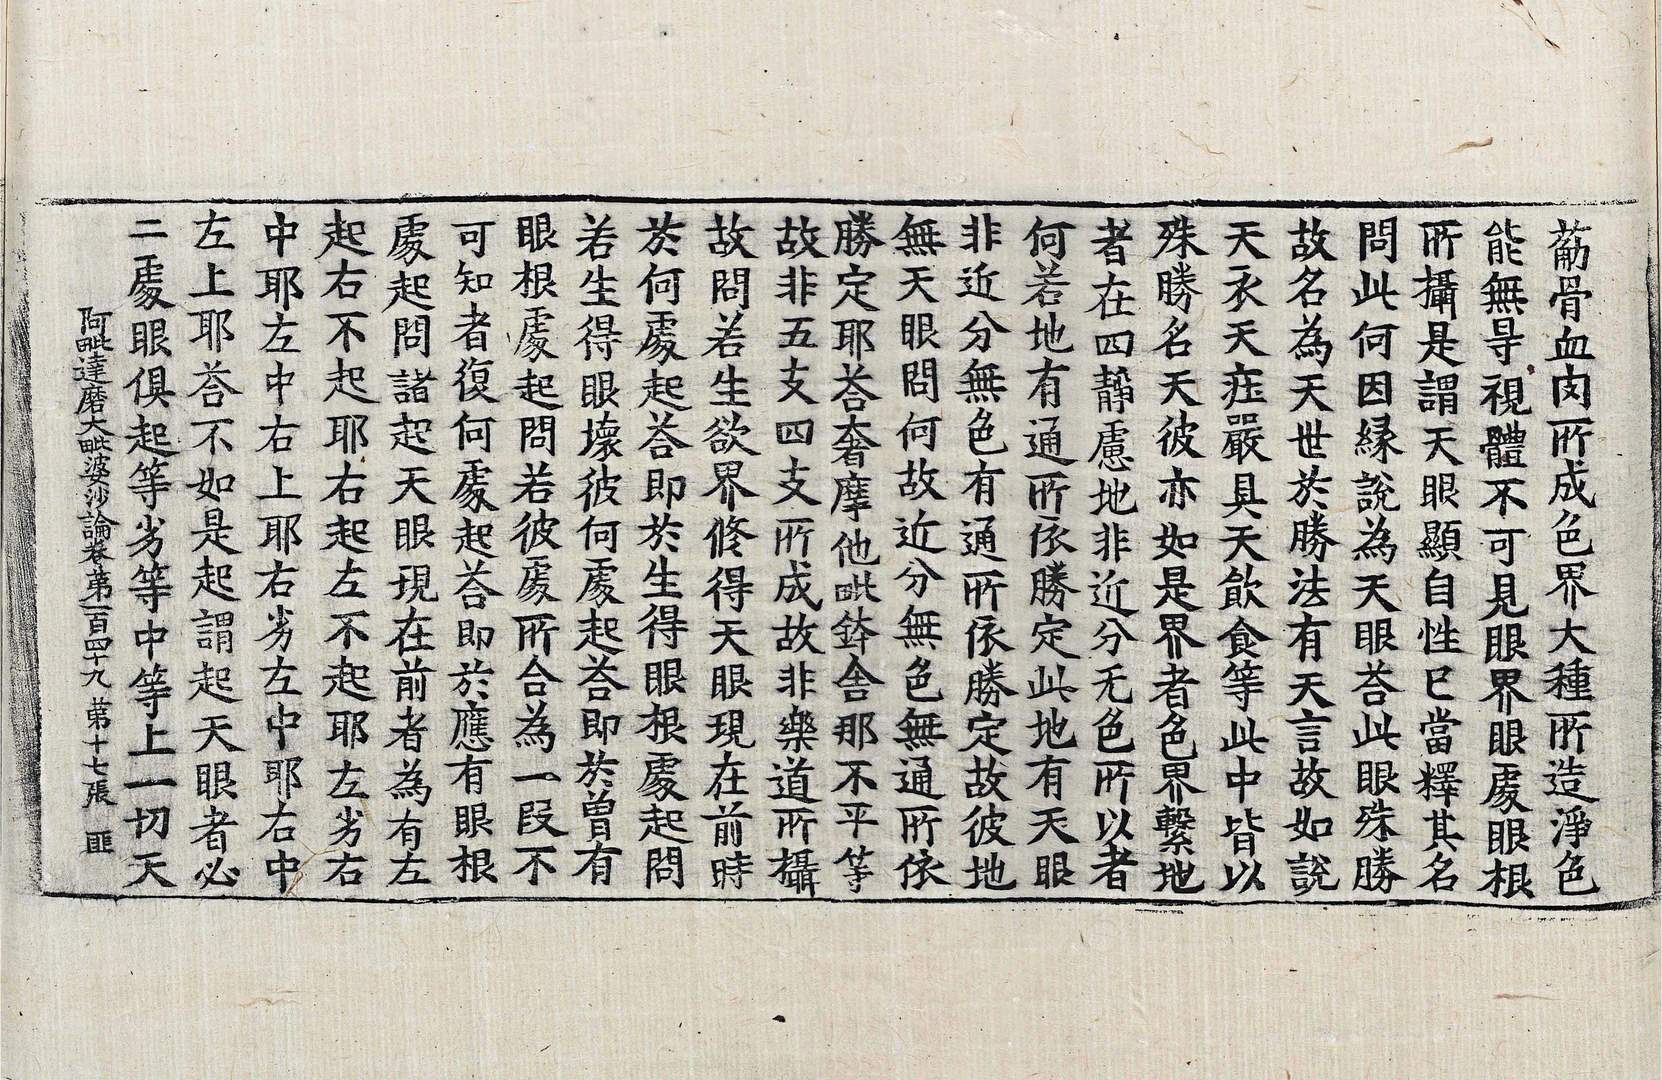 葡骨血肉所成色界大種所造淨色
能無㝵視體不可見眼界眼處眼根
所攝是謂天眼顯自性已當釋其名
問此何因緣說為天眼荅此眼殊勝
故名為天世於勝法有天言故如說
天衣天庄嚴具天飲食等此中皆以
殊勝名天彼亦如是界者色界繫地
者在四靜慮地非近分无色所以者
何若地有通所依勝定此地有天眼
非近分無色有通所依勝定故彼地
無天眼問何故近分無色無通所依
勝定耶荅奢摩他毗鉢舍那不平等
故非五支四支所成故非樂道所攝
故問若生欲界修得天眼現在前時
於何處起荅即於生得眼根處起問
若生得眼壞彼何處起荅即於曾有
眼根處起問若彼處所合為一段不
可知者復何處起荅即於應有眼根
處起問諸起天眼現在前者為有左
起右不起耶右起左不起耶左劣右
中耶左中右上耶右劣左中耶右中
左上耶荅不如是起謂起天眼者必
二處眼俱起等劣等中等上一切天
阿毗達磨大毗婆沙論卷第一百四十九 第十七張 匪